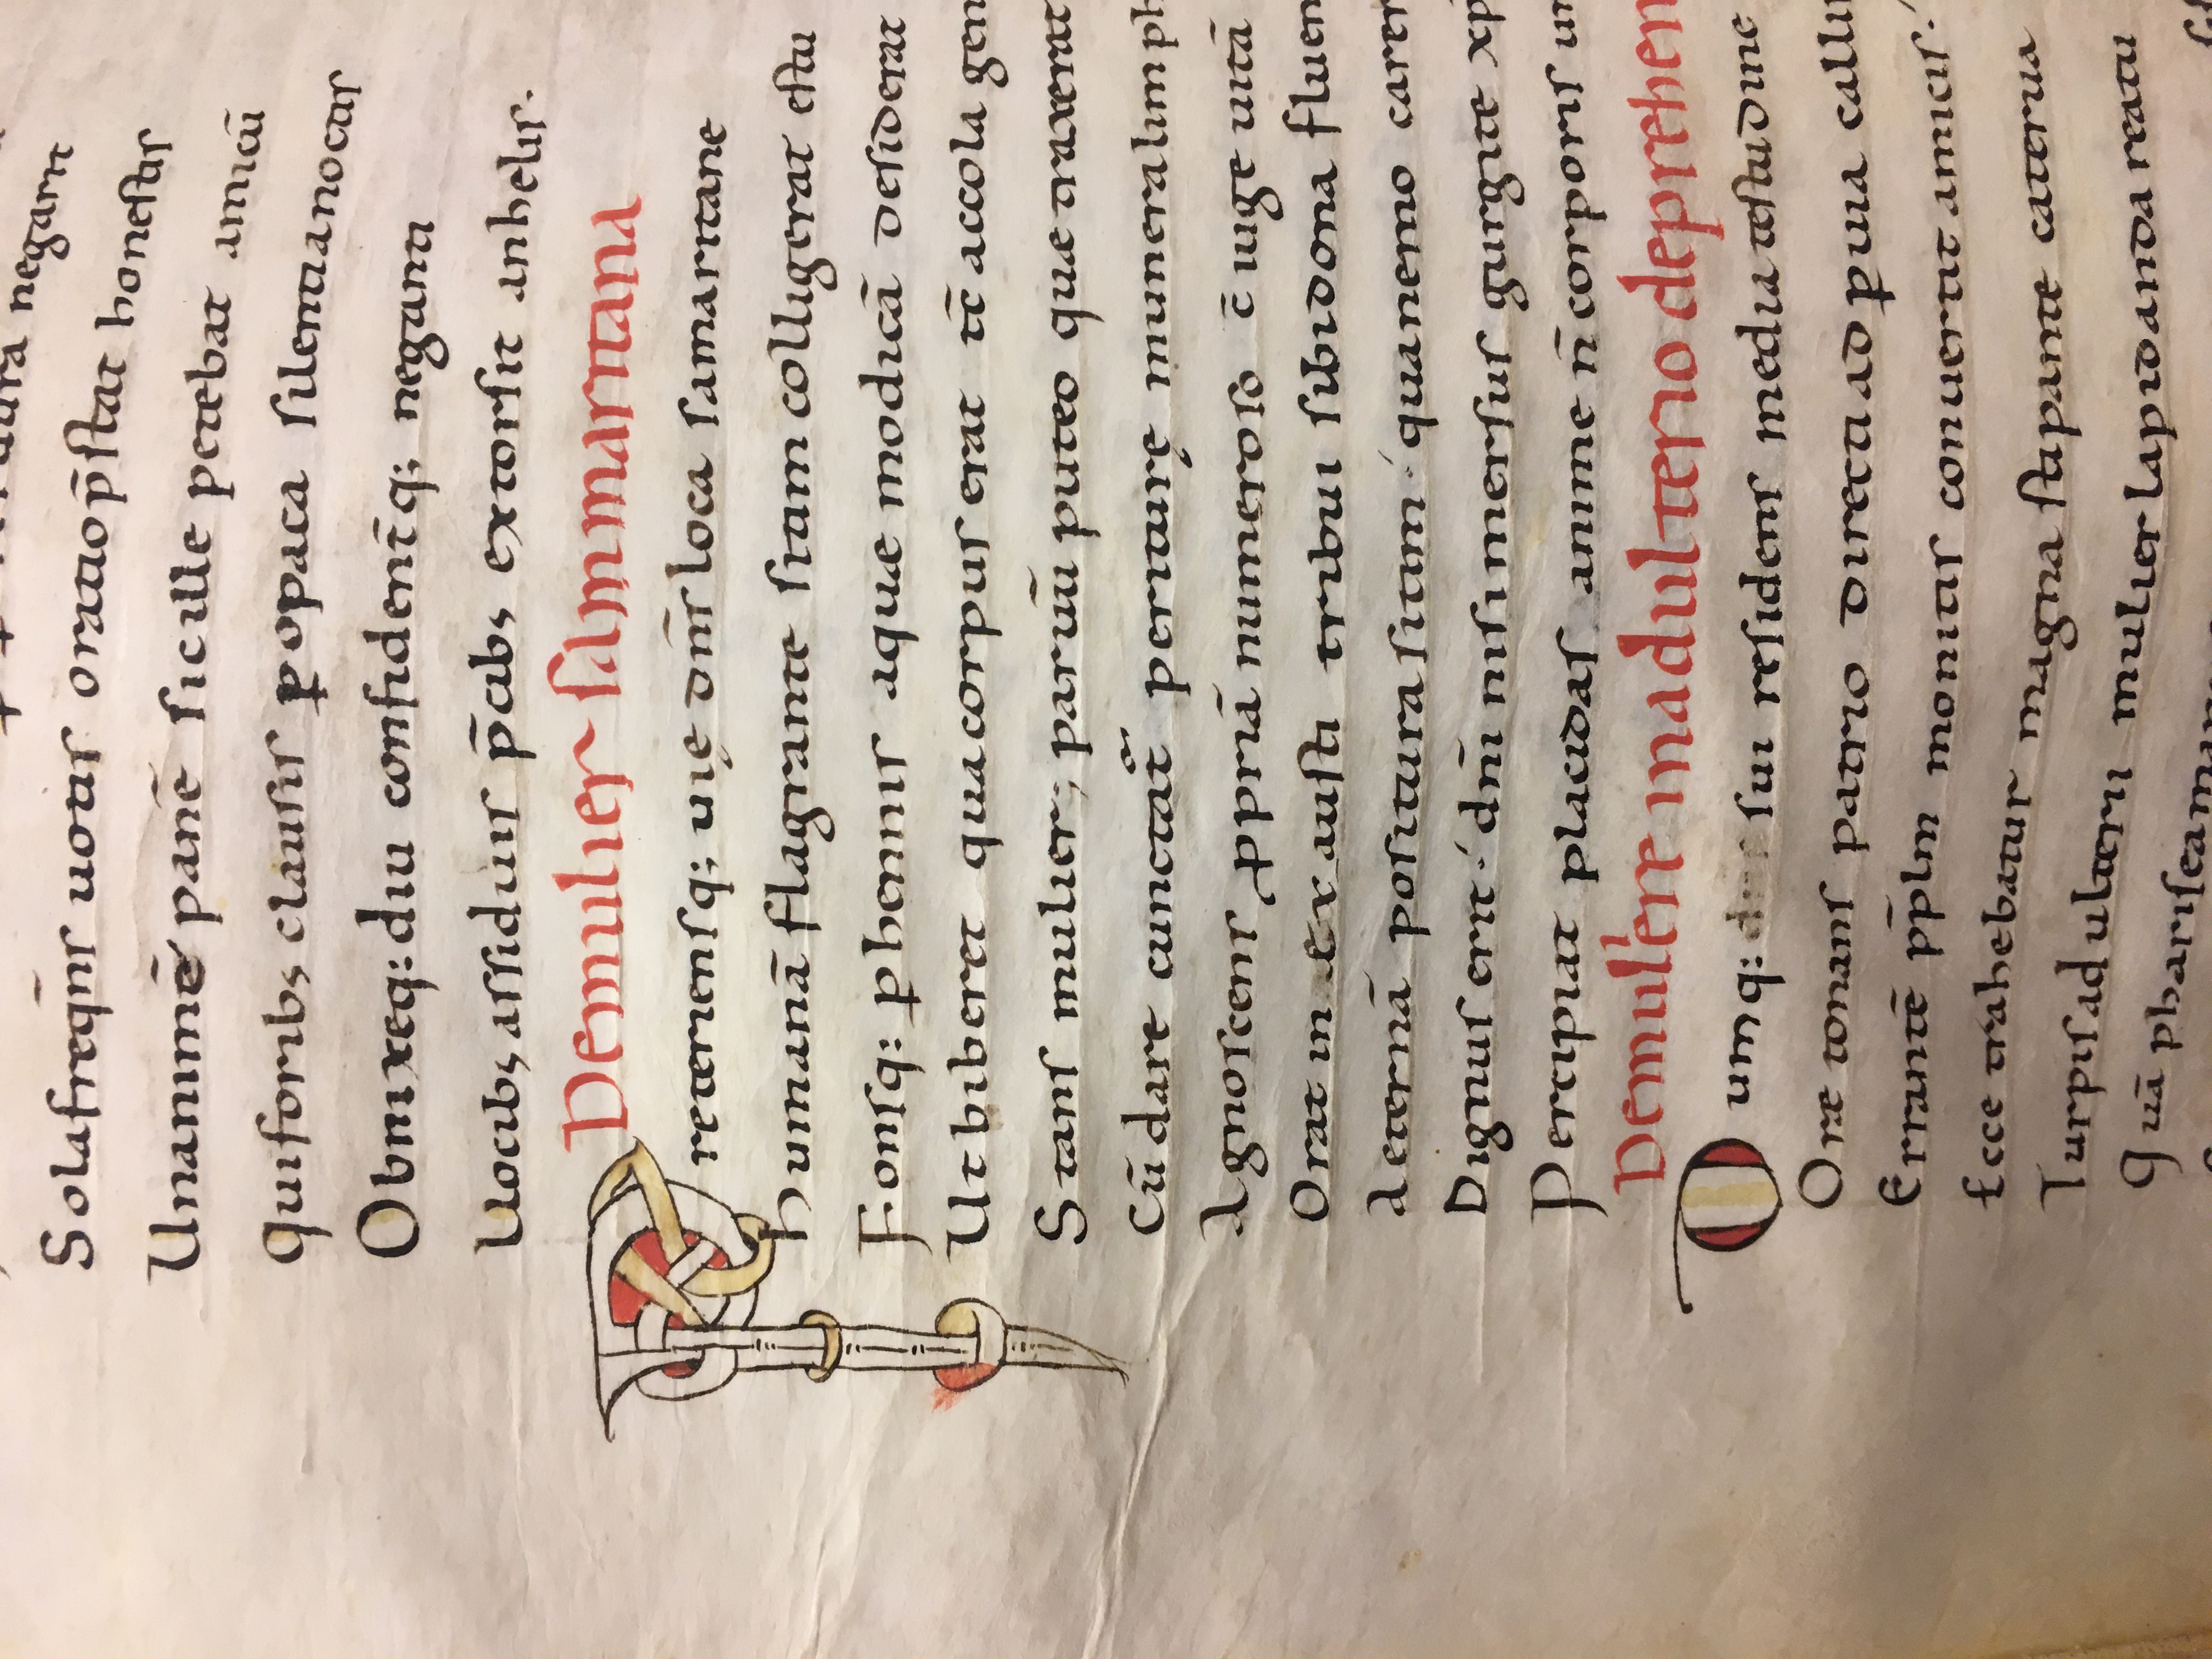 dura negara
Sola freq̄nſ uotaſ oratio p̄ſtat honeſtaſ
Unanimē panē ſic ille petebat amicū
Qui foribꝫ clauſiſ ꝑ opaca ſilentia noctaſ
Obnixeq: diu conſident̄q; neganti
Uocibꝫ aſſiduiſ p̄cibꝫ extorſit anheliſ.
De muliere ſammaritana
Preterienſq; uię dn̄ſ loca ſamaritane
Humanā flagrante ſitam collegerat eſtu
Fonſq: ꝑhenniſ aque modicā deſiderat
Ut biberet qua corpuſ erat tc̄ accola gen
Stanſ mulier; paruū puteo que traxerat
Cū dare cunctat̄ perituręmunera limph
Agnoſcenſ ꝓpriā numeroſo c̄iuge uitā
Orat inexauſti tribui ſibi dona fluen
Aeternā poſitura ſitam· qua nemo carer
Dignuſ erit· dn̄i niſi merſuſ gurgite xp
Percipiat placidaſ anime n̄ corporiſ un
De muliere in adulterio deprehen
Dumq: ſui reſidenſ media teſtudine
Ore tonanſ patrio directi ad ꝑuia calli
Errantē pp̄lm monitaſ conuertit amiciſ.
Ecce trahebatur magna ſtipante caterua
Turpiſ adulterii mulier lapidanda reatu
Quā phariſea man